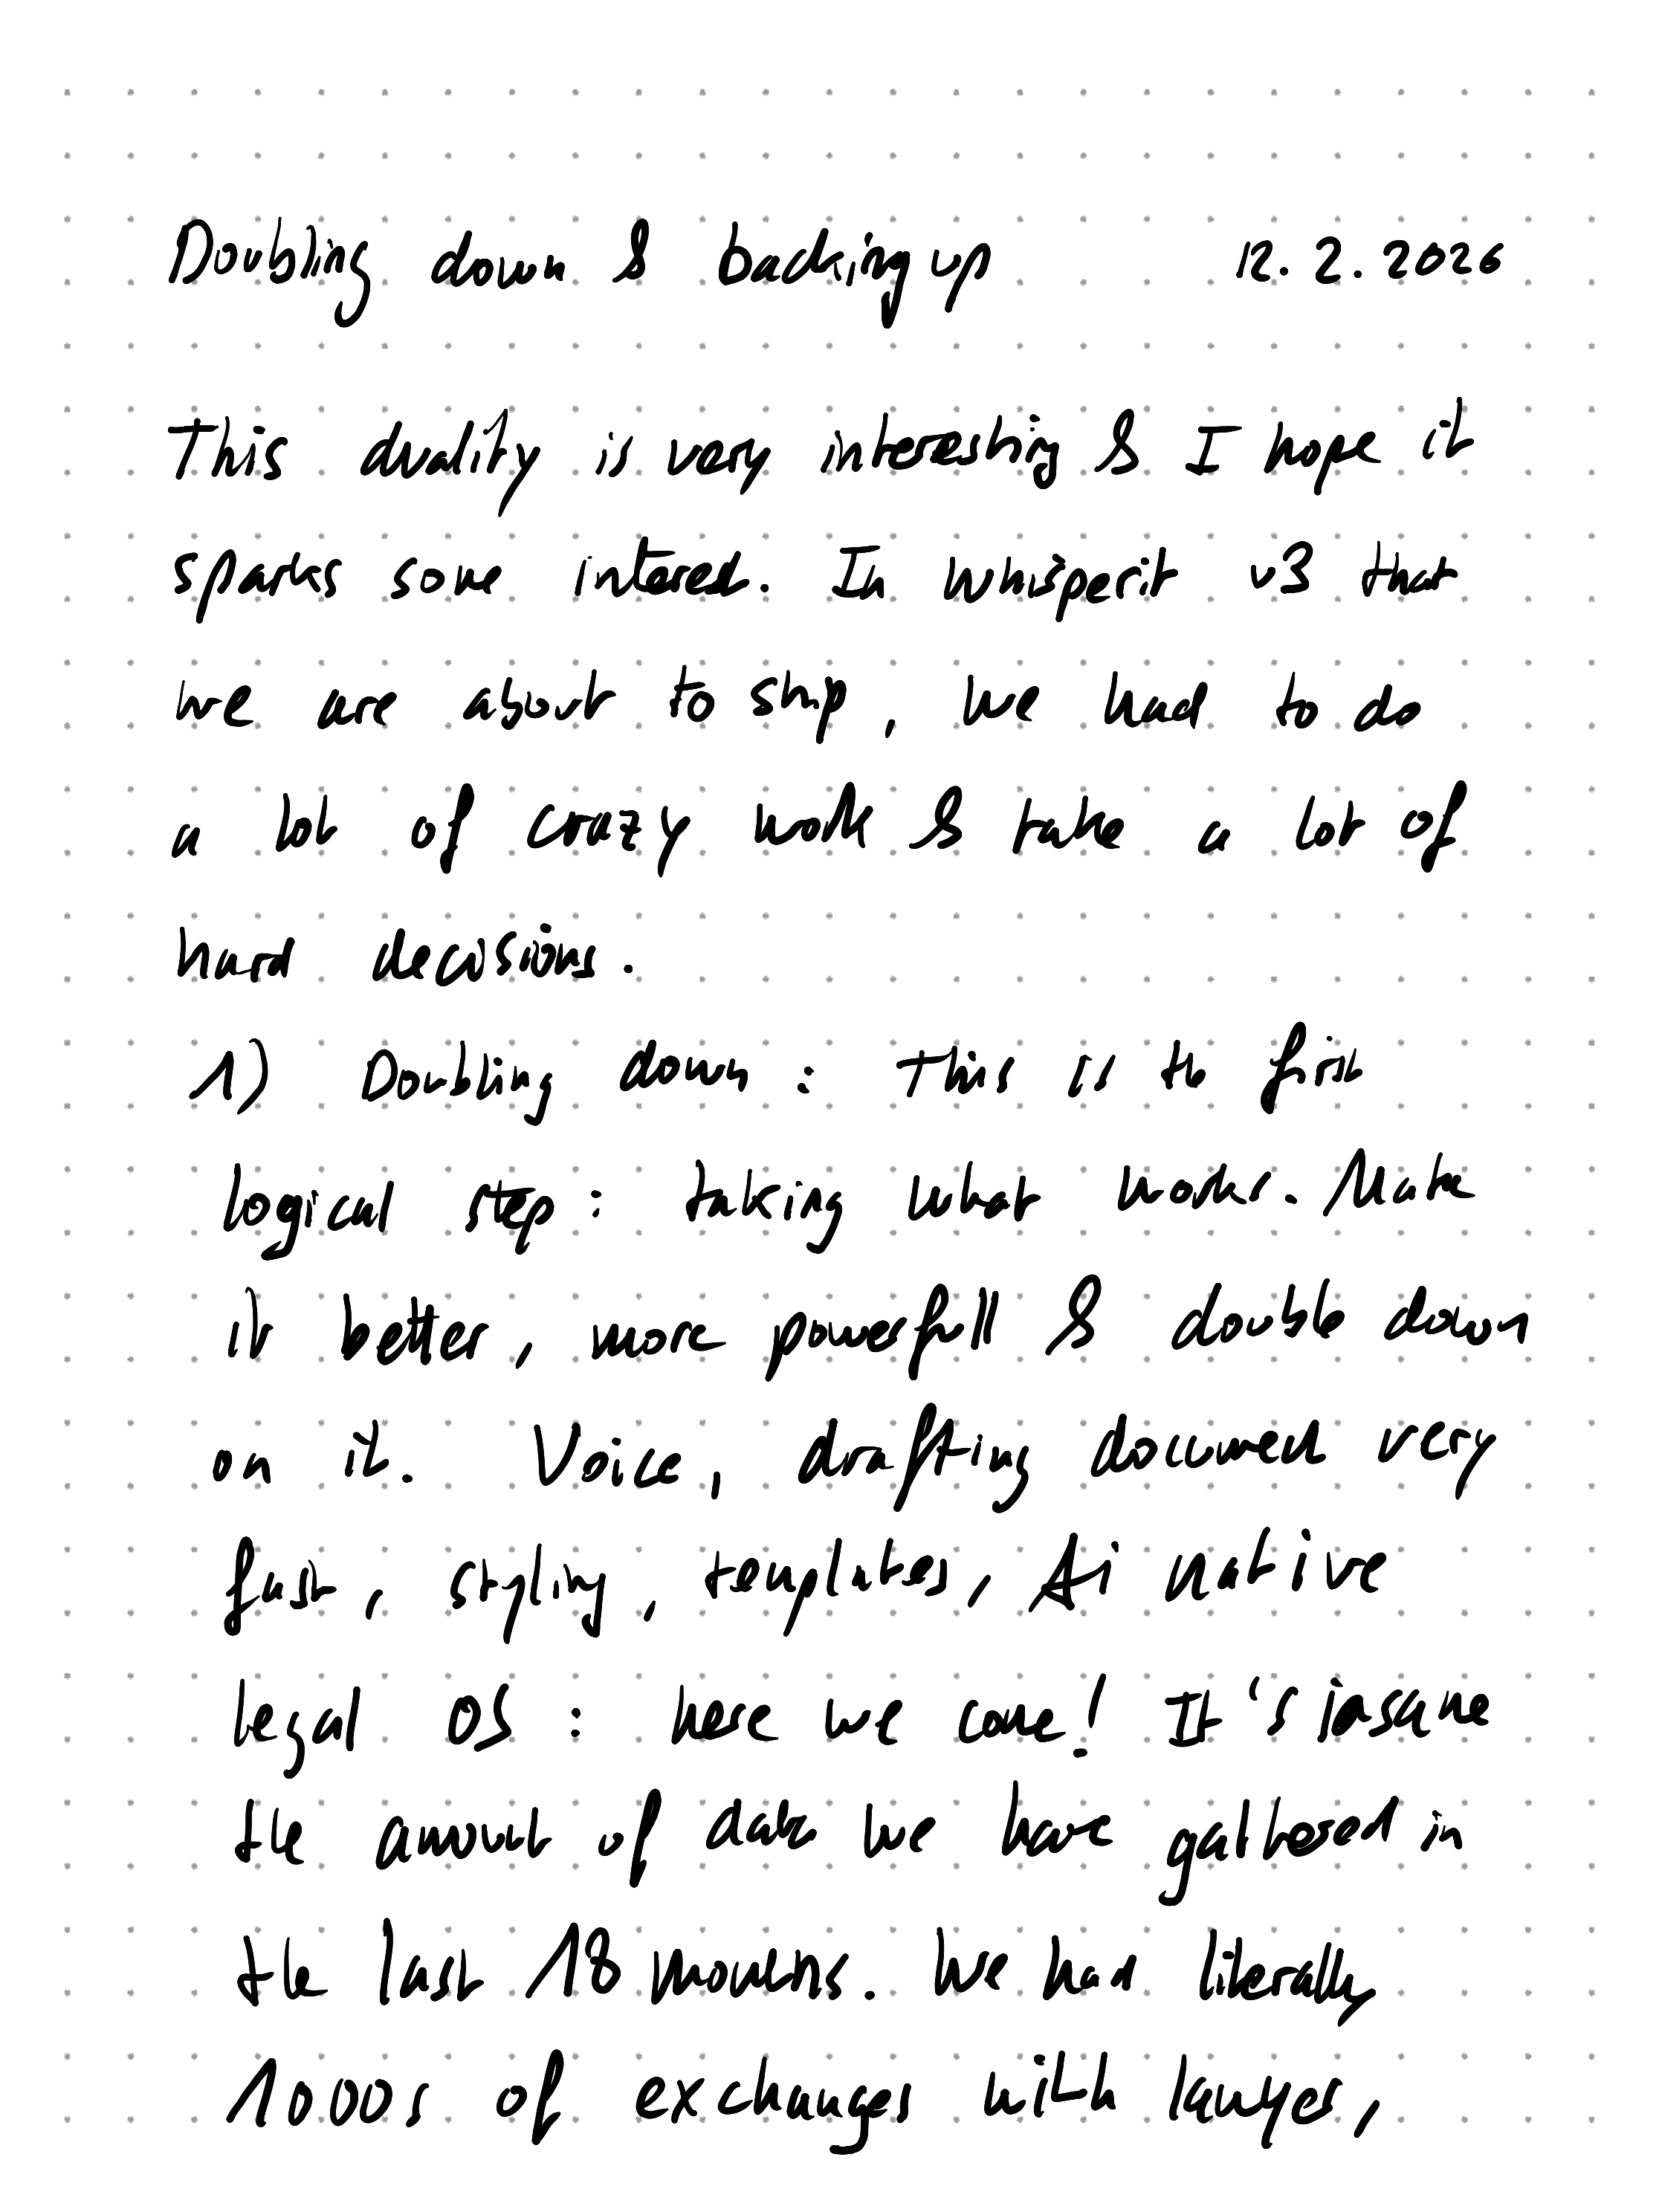 Doubling down & backing up 12.2.2026
This duality is very interesting & I hope it
sparks some interest. In Whisperit v3 that
we are about to ship, we had to do
a lot of crazy work & take a lot of
hard decisions.
1) Doubling down : This is the first
logical step : taking what works. Make
it better, more powerfull & double down
on it. Voice, drafting document very
fast, styling, templates, Ai native
legal OS : here we come! It's insane
the amount of data we have gathered in
the last 18 months. We had literally
1000s of exchanges with lawyer,